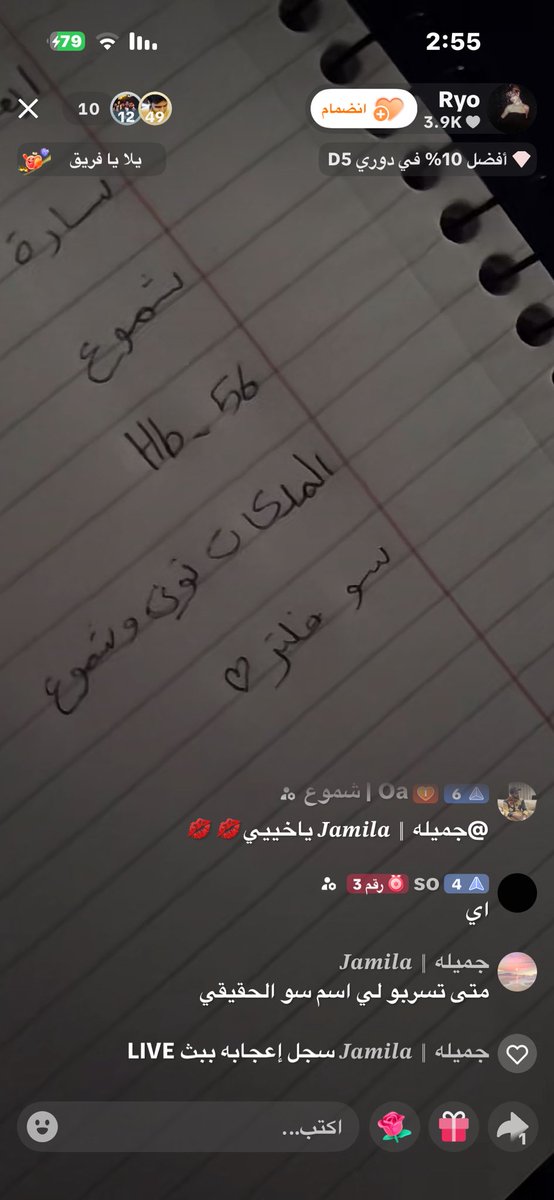 2:55
79
Ryo
3.9K
انضمام
12
49
10
أفضل 10% في دوري D5
يلا يا فريق
سارة
شموع
Hb_56
الملكات نوني وشموع
سو فلتر ♡
6 Oa | شموع
@جميله | Jamila ياخييي💋💋
4 رقم 3 so
اي
جميله | Jamila
متى تسربو لي اسم سو الحقيقي
جميله | Jamila سجل إعجابه ببث LIVE
اكتب...
1